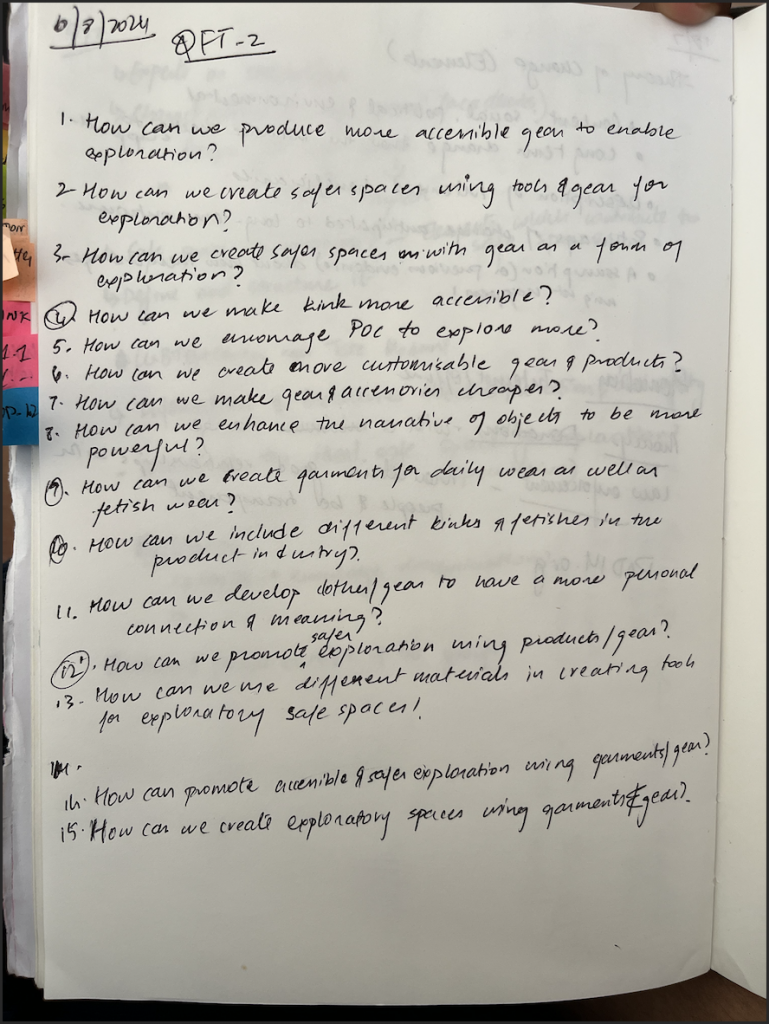 6/8/2024
QFT-2
1. How can we produce more accessible gear to enable
exploration?
2- How can we create safer spaces using tools & gear for
exploration?
3- How can we create safer spaces with gear as a form of
exploration?
4. How can we make kink more accessible?
5. How can we encourage POC to explore more?
6. How can we create more customisable gear & products?
7. How can we make gear & accessories cheaper?
8. How can we enhance the narrative of objects to be more
powerful?
9. How can we create garments for daily wear as well as
fetish wear?
10. How can we include different kinks & fetishes in the
product industry?
11. How can we develop clothes/gear to have a more personal
connection & meaning?
12. How can we promote safer exploration using products/gear?
13- How can we use different materials in creating tools
for exploratory safe spaces!
14.
14. How can promote accessible & safer exploration using garments/gear?
15. How can we create exploratory spaces using garments & gear?